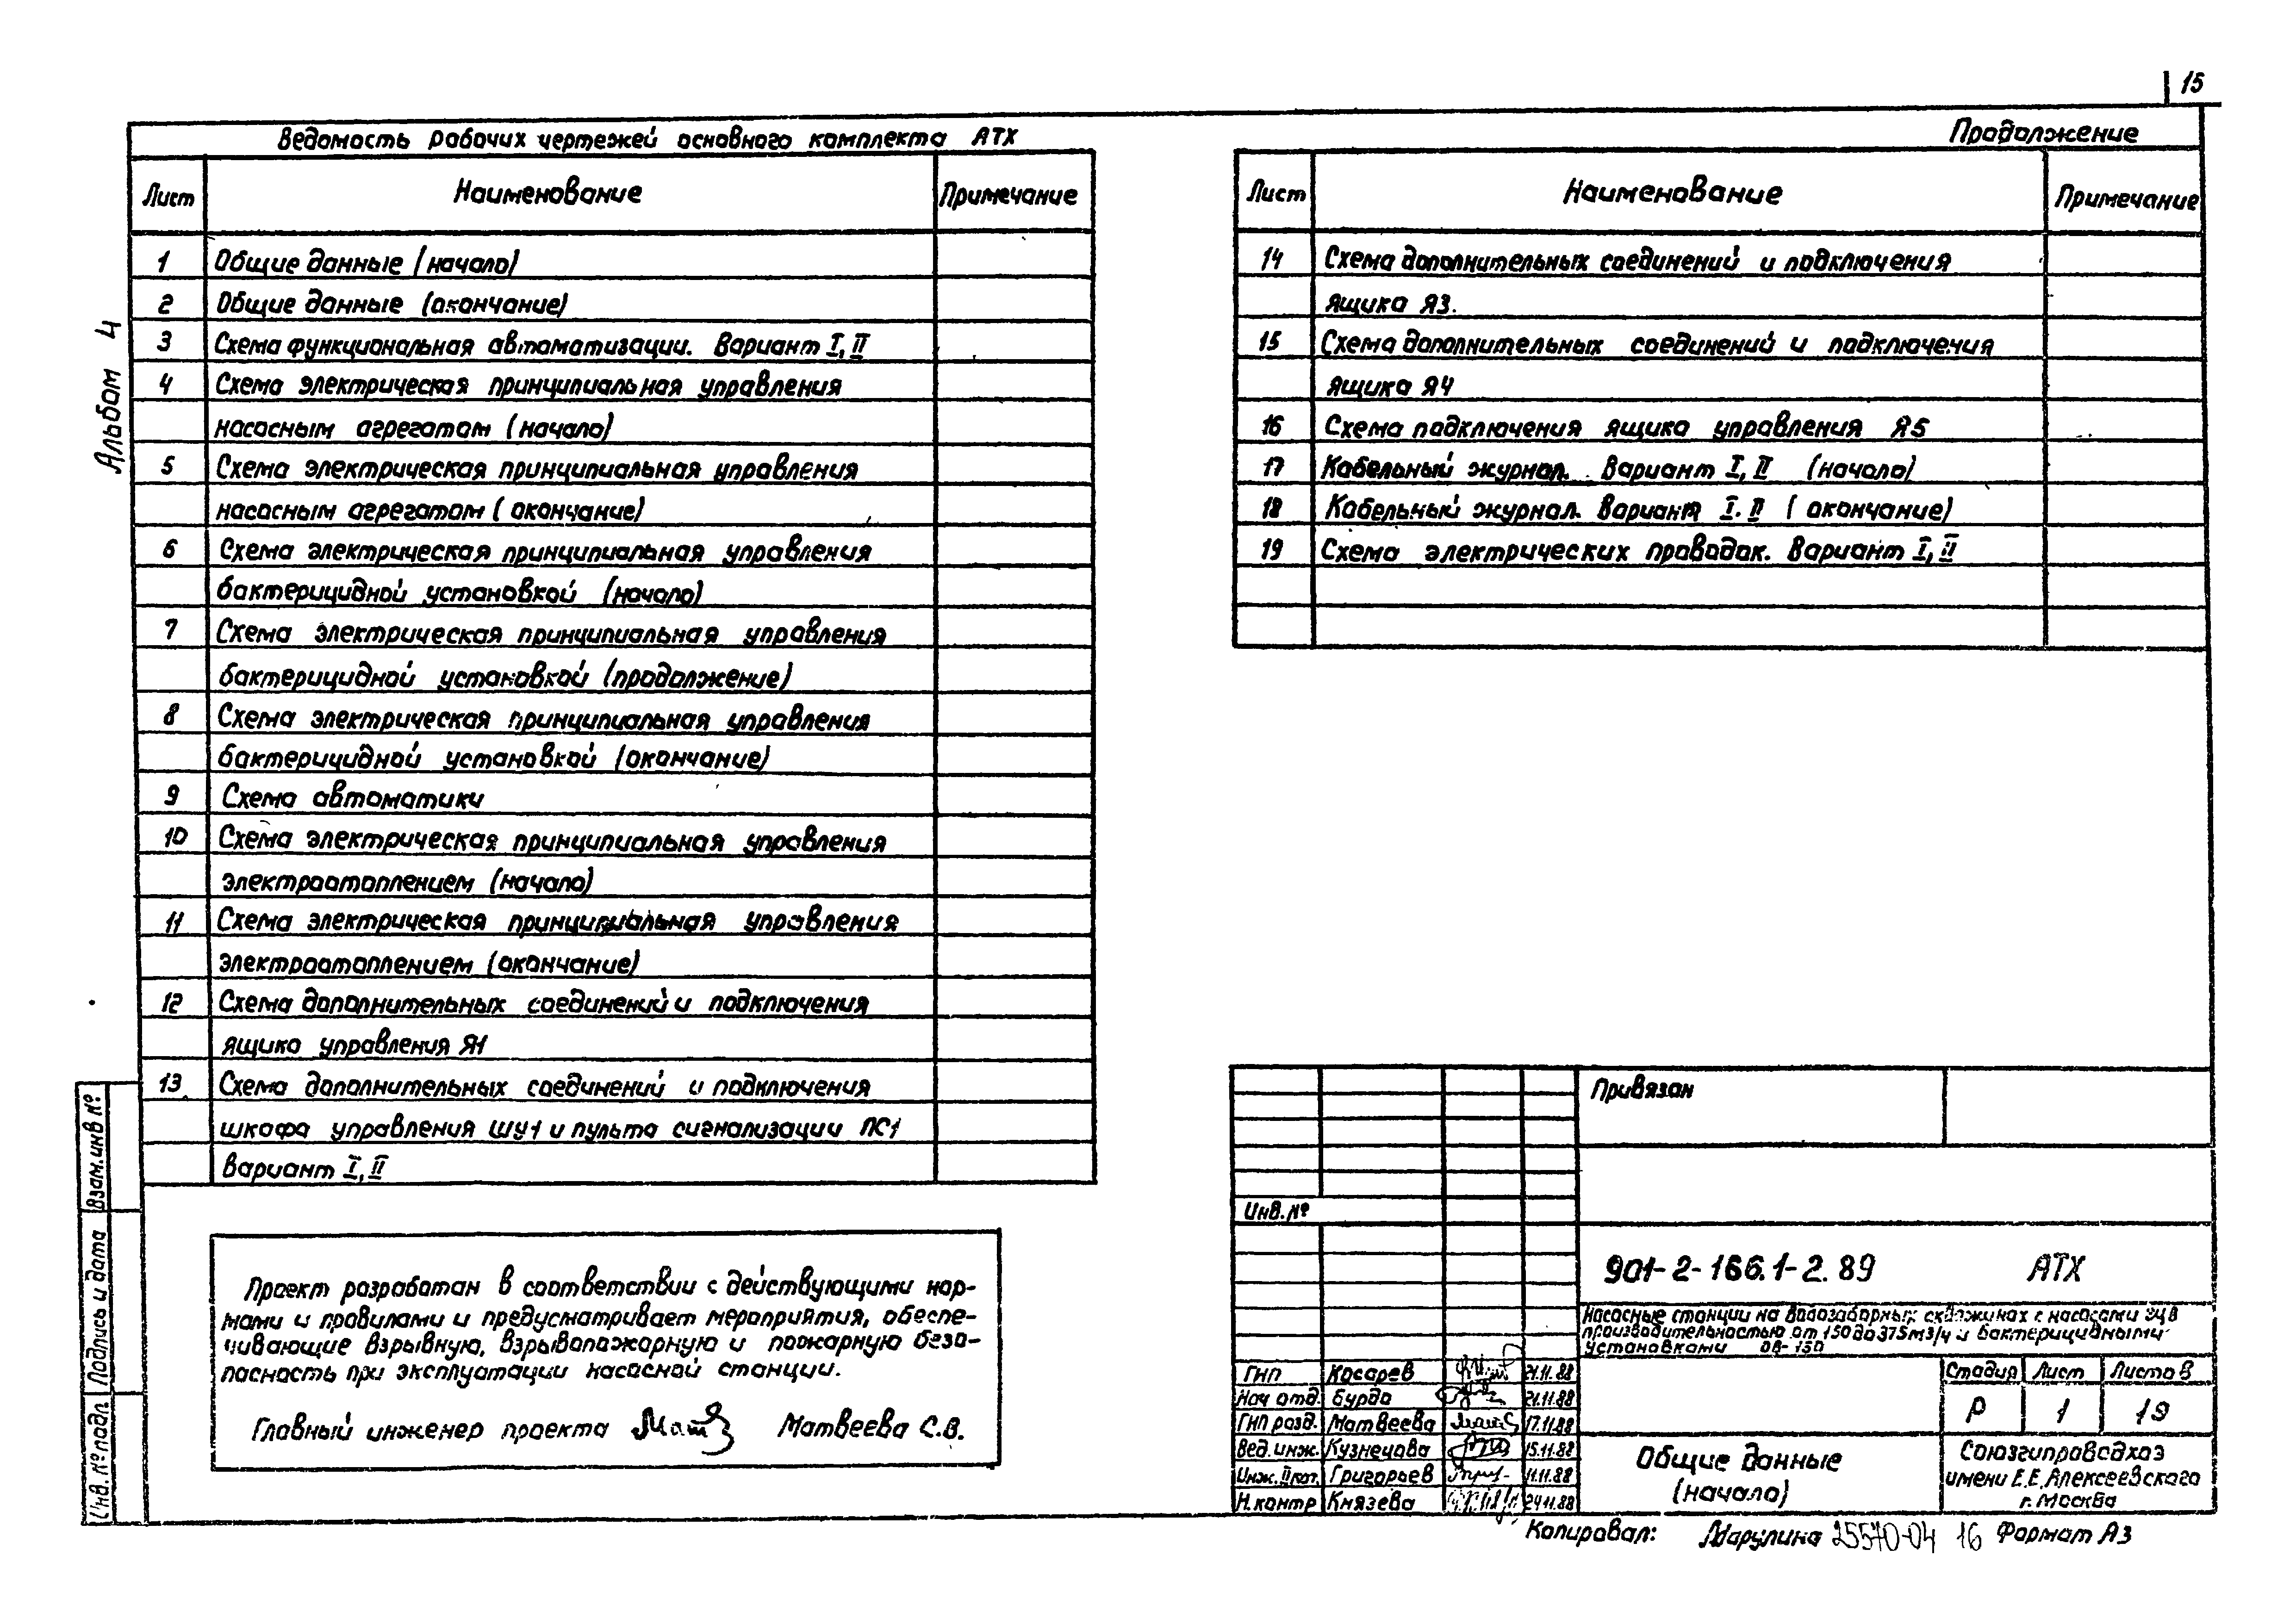 15
Ведомость рабочих чертежей основного комплекта АТХ
Лист Наименование Примечание
1 Общие данные (начало)
2 Общие данные (окончание)
3 Схема функциональная автоматизации. Вариант I, II
4 Схема электрическая принципиальная управления
насосным агрегатом (начало)
5 Схема электрическая принципиальная управления
насосным агрегатом (окончание)
6 Схема электрическая принципиальная управления
бактерицидной установкой (начало)
7 Схема электрическая принципиальная управления
бактерицидной установкой (продолжение)
8 Схема электрическая принципиальная управления
бактерицидной установкой (окончание)
9 Схема автоматики
10 Схема электрическая принципиальная управления
электроотоплением (начало)
11 Схема электрическая принципиальная управления
электроотоплением (окончание)
12 Схема дополнительных соединений и подключения
ящика управления Я1
13 Схема дополнительных соединений и подключения
шкафа управления ШУ1 и пульта сигнализации ПС1
Вариант I, II
Продолжение
Лист Наименование Примечание
14 Схема дополнительных соединений и подключения
ящика Я3.
15 Схема дополнительных соединений и подключения
ящика Я4
16 Схема подключения ящика управления Я5
17 Кабельный журнал. Вариант I, II (начало)
18 Кабельный журнал. Вариант I. II (окончание)
19 Схема электрических проводок. Вариант I, II
Альбом 4
Взам. инв №
Подпись и дата
Инв. № подл.
Проект разработан в соответствии с действующими нор-
мами и правилами и предусматривает мероприятия, обеспе-
чивающие взрывную, взрывопожарную и пожарную безо-
пасность при эксплуатации насосной станции.
Главный инженер проекта Матвеева С.В.
Привязан
Инв. №
901-2-166.1-2.89 АТХ
Насосные станции на водозаборных скважинах с насосами ЭЦВ
производительностью от 150 до 375 м3/ч и бактерицидными
установками ОВ-150
ГИП Косарев 21.11.88
Нач отд. Бурда 21.11.88
ГИП разд. Матвеева 17.11.88
Вед. инж. Кузнецова 15.11.88
Инж. II кат. Григорьев 11.11.88
Н. контр Князева 24.11.88
Стадия Лист Листов
Р 1 19
Общие данные
(начало)
Союзгипроводхоз
имени Е.Е. Алексеевского
г. Москва
Копировал: Марулина 25570-04 16 Формат А3